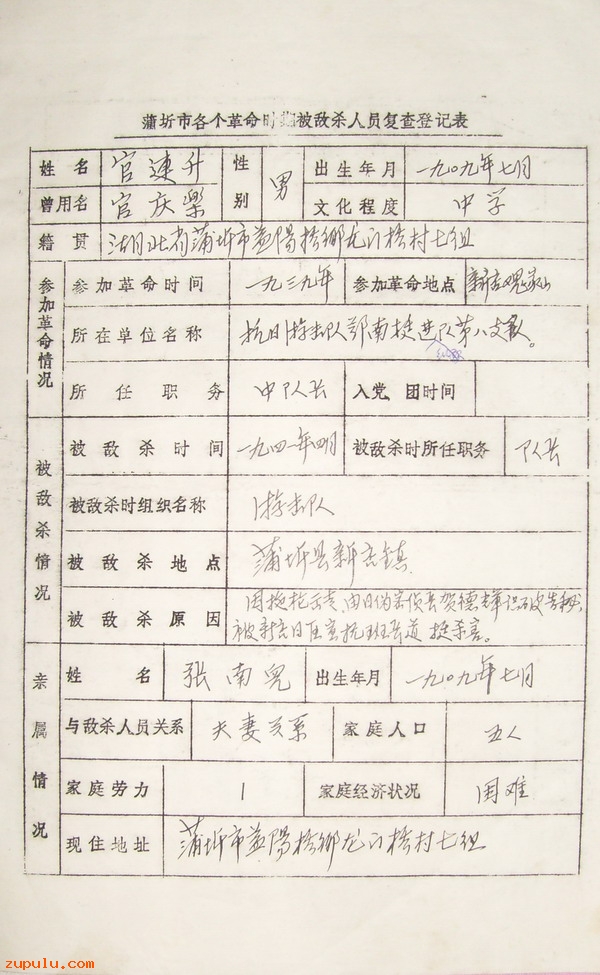 蒲圻市各个革命时期被敌杀人员复查登记表
姓名 官连升 性别 男 出生年月 一九〇九年七月
曾用名 官庆樂 文化程度 中学
籍贯 湖北省蒲圻市益陽桥鄉龙门桥村七组
参加革命情况
参加革命时间 一九三九年 参加革命地点 新店
所在单位名称 抗日游击队鄂南挺进队第八支队。
所任职务 中队长 入党、团时间
被敌杀情况
被敌杀时间 一九四一年四月 被敌杀时所任职务 队长
被敌杀时组织名称 游击队
被敌杀地点 蒲圻县新店镇
被敌杀原因 因 由日伪 长贺德輝识破告秘,
被新店日 杀害。
亲属情况
姓名 张南兒 出生年月 一九〇九年七月
与敌杀人员关系 夫妻关系 家庭人口 五人
家庭劳力 1 家庭经济状况 困难
现住地址 蒲圻市益陽桥鄉龙门桥村七组
zupulu.com